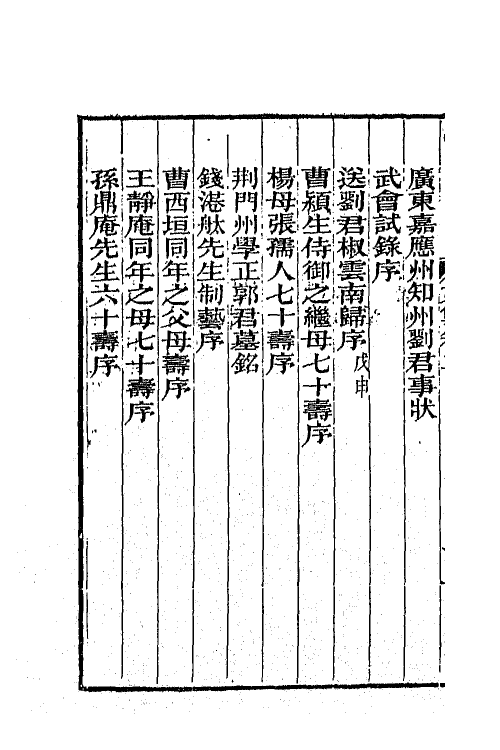 廣東嘉應州知州劉君事狀
武會試錄序
送劉君椒雲南歸序戊申
曹潁生侍御之繼母七十壽序
楊母張孺人七十壽序
荆門州學正郭君墓銘
錢港舲先生制藝序
曹西垣同年之父母壽序
王靜庵同年之母七十壽序
孫鼎庵先生六十壽序